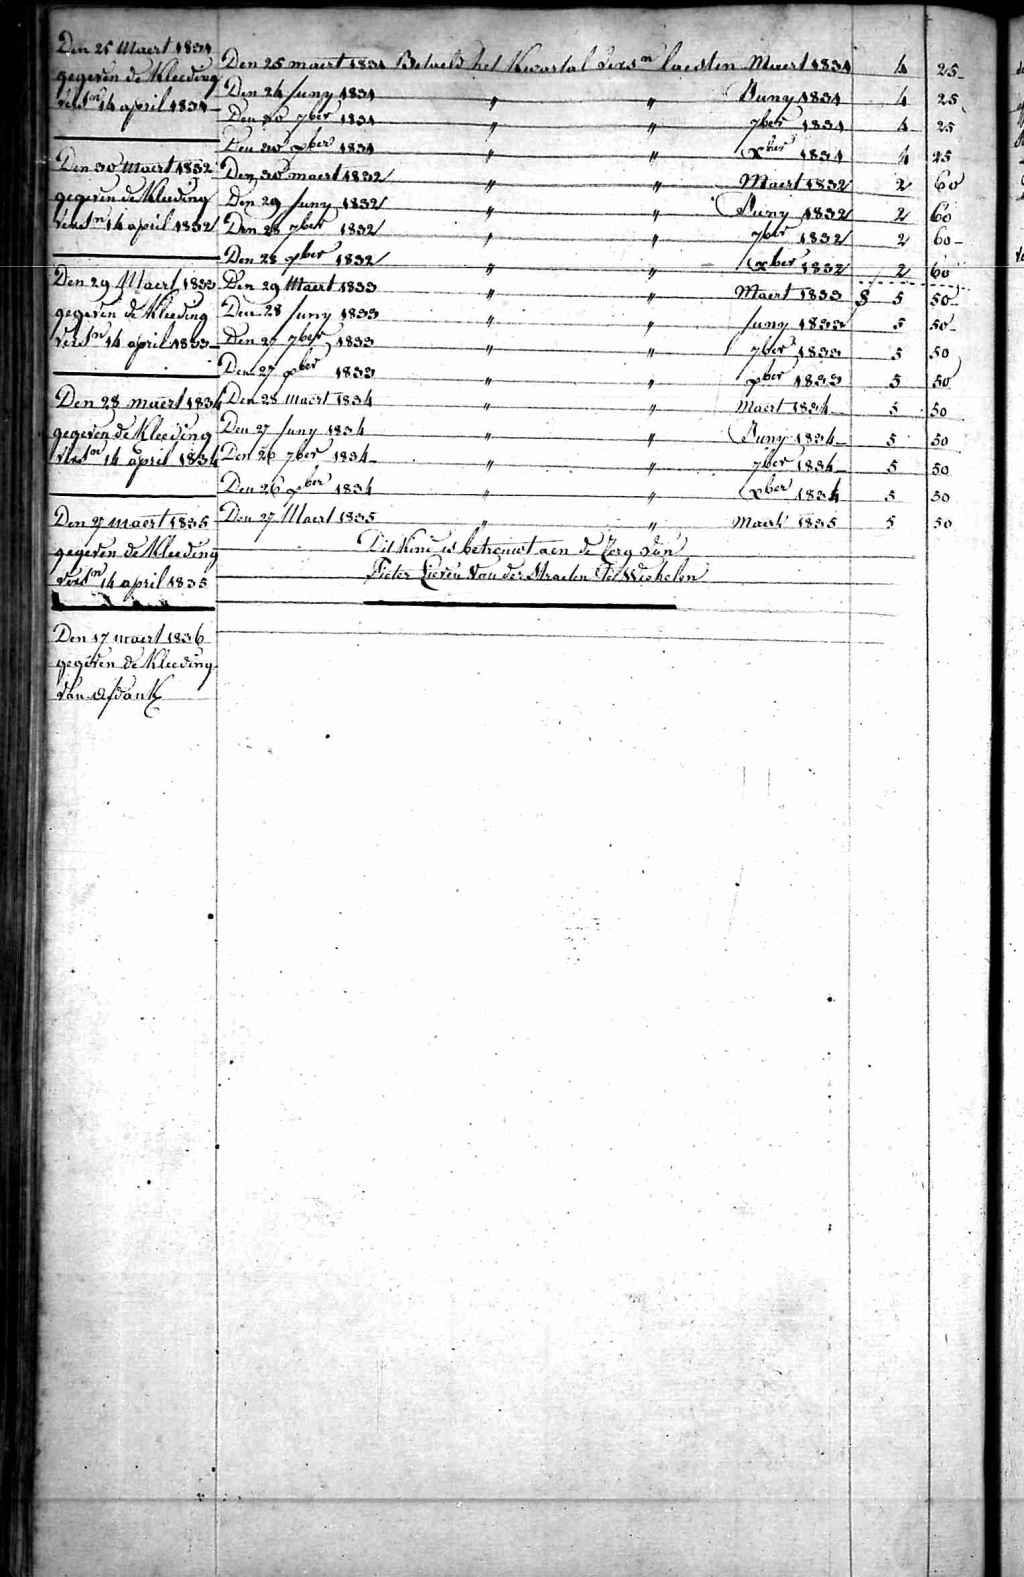 Den 25 Maert 1831
gegeven de Kleeding
versn 14 april 1831
Den 30 Maert 1832
gegeven de Kleeding
versn 14 april 1832
Den 29 Maert 1833
gegeven de Kleeding
versn 14 april 1833
Den 28 maert 1834
gegeven de Kleeding
versn 14 april 1834
Den 27 maert 1835
gegeven de Kleeding
versn 14 april 1835
Den 17 maert 1836
gegeven de Kleeding
van Afdank
Den 25 maert 1831 Betaeld het Kwartal versn laesten Maert 1831 4 25
Den 24 Juny 1831 " " Juny 1831 4 25
Den 20 7ber 1831 " " 7ber 1831 4 25
Den 20 xber 1831 " " xber 1831 4 25
Den 30 maert 1832 " " Maert 1832 2 60
Den 29 Juny 1832 " " Juny 1832 2 60
Den 28 7ber 1832 " " 7ber 1832 2 60
Den 28 xber 1832 " " xber 1832 2 60
Den 29 Maert 1833 " " Maert 1833 5 50
Den 28 Juny 1833 " " Juny 1833 5 50
Den 27 7ber 1833 " " 7ber 1833 5 50
Den 27 xber 1833 " " xber 1833 5 50
Den 28 maert 1834 " " Maert 1834 5 50
Den 27 Juny 1834 " " Juny 1834 5 50
Den 26 7ber 1834 " " 7ber 1834 5 50
Den 26 xber 1834 " " xber 1834 5 50
Den 27 Maert 1835 " " Maert 1835 5 50
Dit Kind is betrouwt aen de Zorg van
Pieter Lieven Van der Straeten Te Wichelen